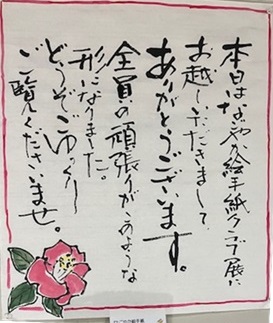 本日はなごやか絵手紙クラブ展に
お越しいただきまして
ありがとうございます。
全員の頑張りがこのような
形になりました。
どうぞごゆっくり
ご覧くださいませ。